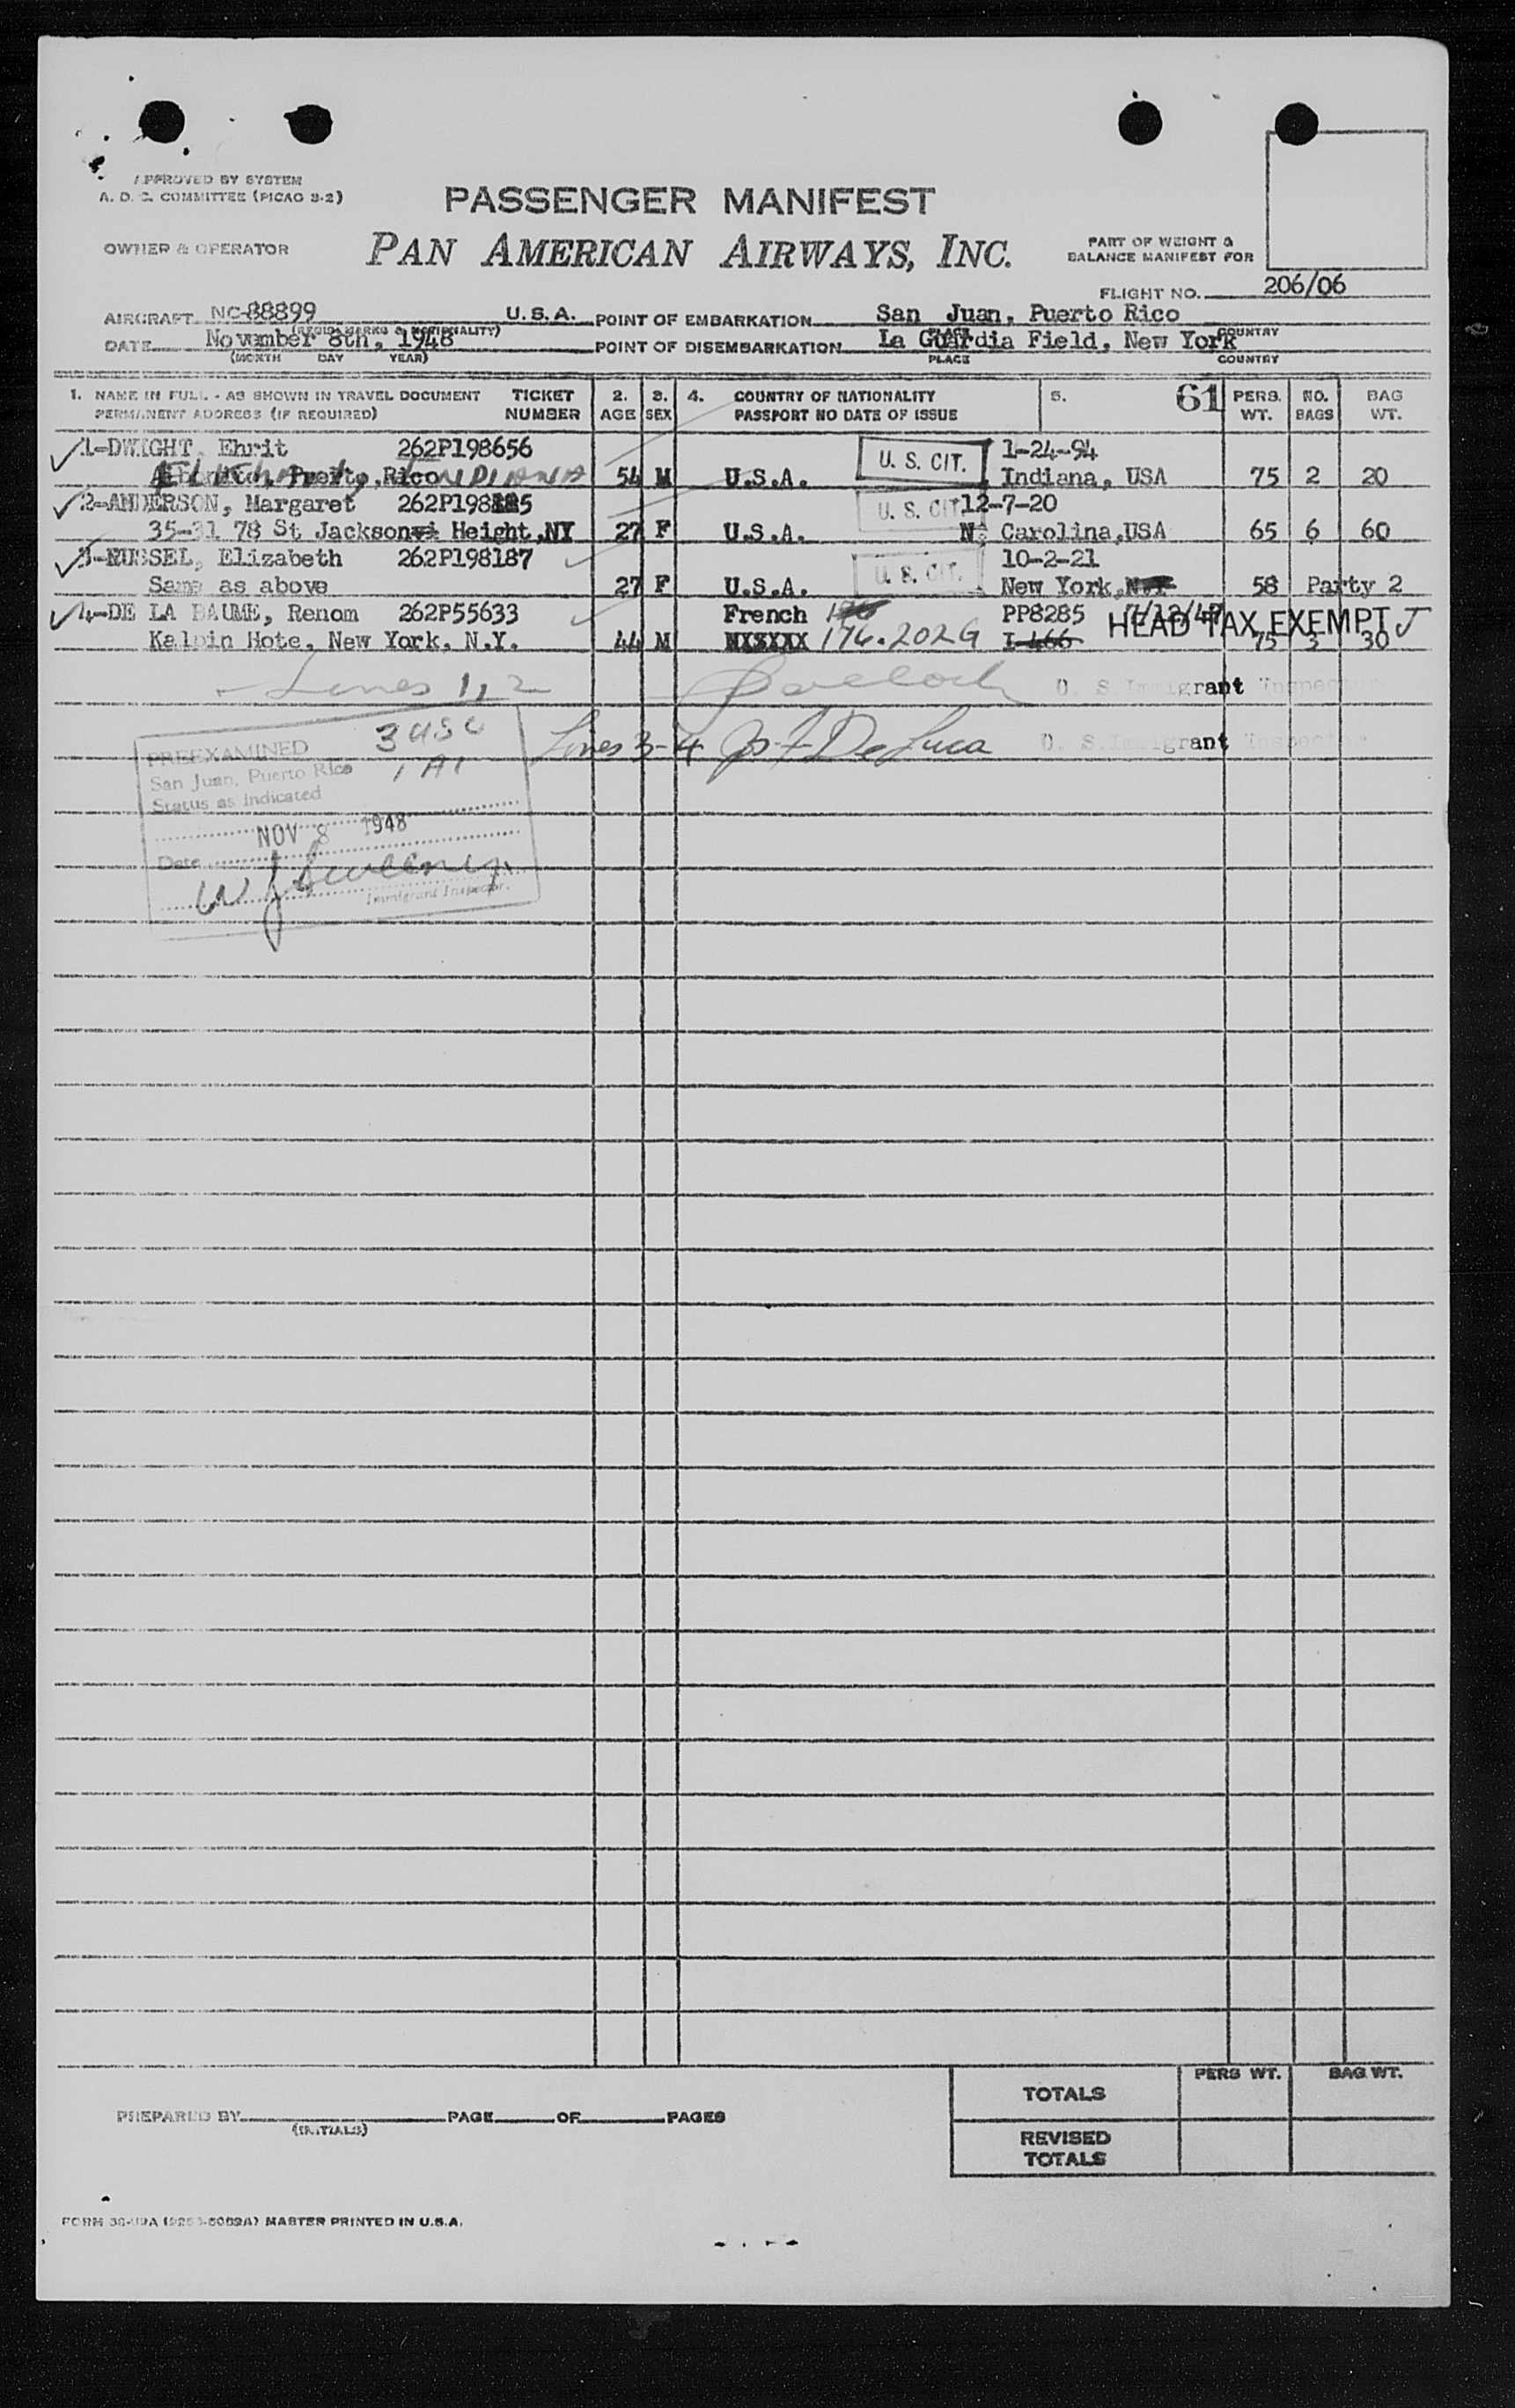 APPROVED BY SYSTEM
A. D. C. COMMITTEE (PICAO 3-2)
PASSENGER MANIFEST
OWNER & OPERATOR
PAN AMERICAN AIRWAYS, INC.
PART OF WEIGHT &
BALANCE MANIFEST FOR
FLIGHT NO. 206/06
AIRCRAFT NC-88899 U.S.A. POINT OF EMBARKATION San Juan, Puerto Rico
(REGIS. MARKS & NATIONALITY) PLACE COUNTRY
DATE November 8th, 1948 POINT OF DISEMBARKATION La Guardia Field, New York
(MONTH DAY YEAR) PLACE COUNTRY
1. NAME IN FULL - AS SHOWN IN TRAVEL DOCUMENT TICKET 2. 3. 4. COUNTRY OF NATIONALITY 5. 61 PERS. NO. BAG
PERMANENT ADDRESS (IF REQUIRED) NUMBER AGE SEX PASSPORT NO DATE OF ISSUE WT. BAGS WT.
1-DWIGHT, Ehrit 262P198656 U. S. CIT. 1-24-94
Puerto Rico INDIANA 54 M U.S.A. Indiana, USA 75 2 20
2-ANDERSON, Margaret 262P198185 U. S. CIT. 12-7-20
35-31 78 St Jackson Height,NY 27 F U.S.A. N. Carolina,USA 65 6 60
3-RUSSEL, Elizabeth 262P198187 U. S. CIT. 10-2-21
Same as above 27 F U.S.A. New York, 58 Party 2
4-DE LA BAUME, Renom 262P55633 French PP8285
HEAD TAX EXEMPT
Kelbin Hote, New York, N.Y. 44 M 176.202G I-466 75 3 30
Lines 1, 2 U. S. Immigrant Inspector
Lines 3-4 Jos F De Luca U. S. Immigrant Inspector
PREEXAMINED
San Juan, Puerto Rico
Status as Indicated
NOV 8 1948
Date
W J Sweeney
Immigrant Inspector.
TOTALS PERS WT. BAG WT.
PREPARED BY PAGE OF PAGES
(INITIALS)
REVISED
TOTALS
MASTER PRINTED IN U.S.A.